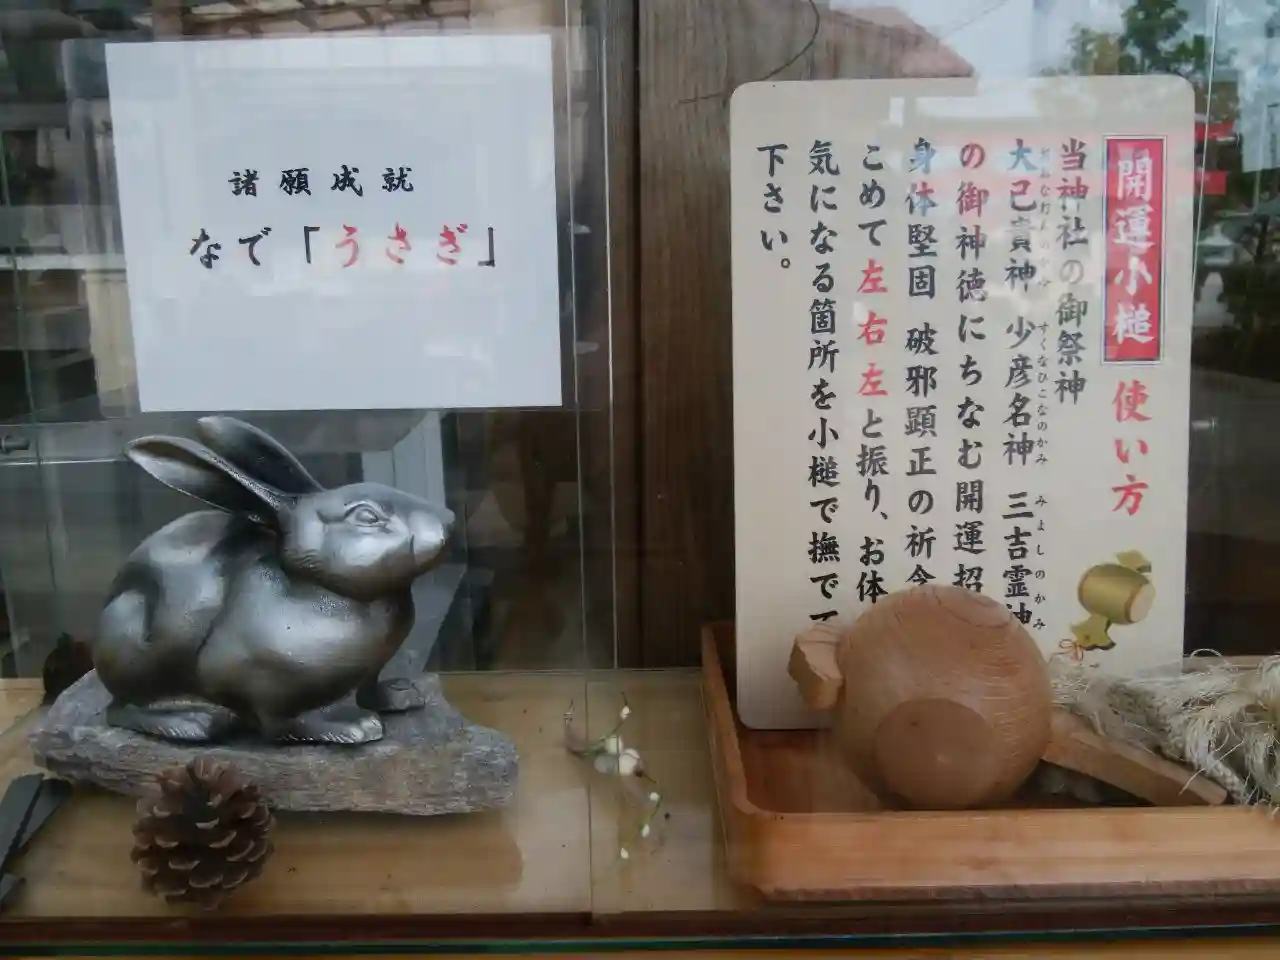 諸願成就
なで「うさぎ」
開運小槌 使い方
当神社の御祭神
大己貴神 少彦名神 三吉霊神
すくなひこなのかみ
みよしのかみ
の御神徳にちなむ開運招
身体堅固 破邪顕正の祈念
こめて左右左と振り、お体
気になる箇所を小槌で撫でて
下さい。